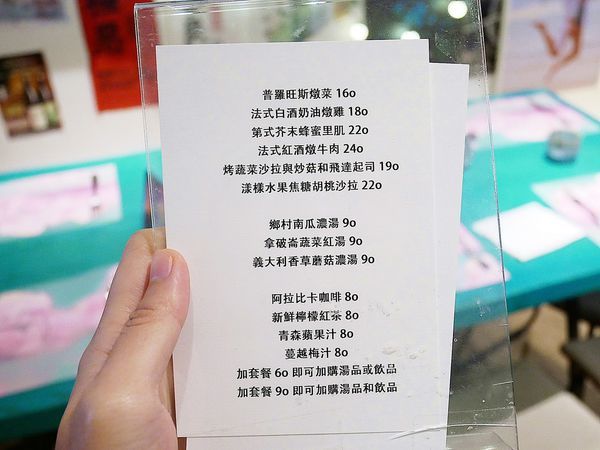 普羅旺斯燉菜 160
法式白酒奶油燉雞 180
第式芥末蜂蜜里肌 220
法式紅酒燉牛肉 240
烤蔬菜沙拉與炒菇和飛達起司 190
漾樣水果焦糖胡桃沙拉 220
鄉村南瓜濃湯 90
拿破崙蔬菜紅湯 90
義大利香草蘑菇濃湯 90
阿拉比卡咖啡 80
新鮮檸檬紅茶 80
青森蘋果汁 80
蔓越梅汁 80
加套餐 60 即可加購湯品或飲品
加套餐 90 即可加購湯品和飲品